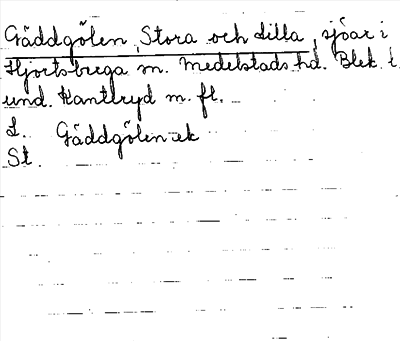 Gäddgölen, Stora och Lilla, sjöar i
Hjortsberga sn. Medelstads hd. Blek. l.
und. Kantlryd m. fl.
L. Gäddgölen ek
St.